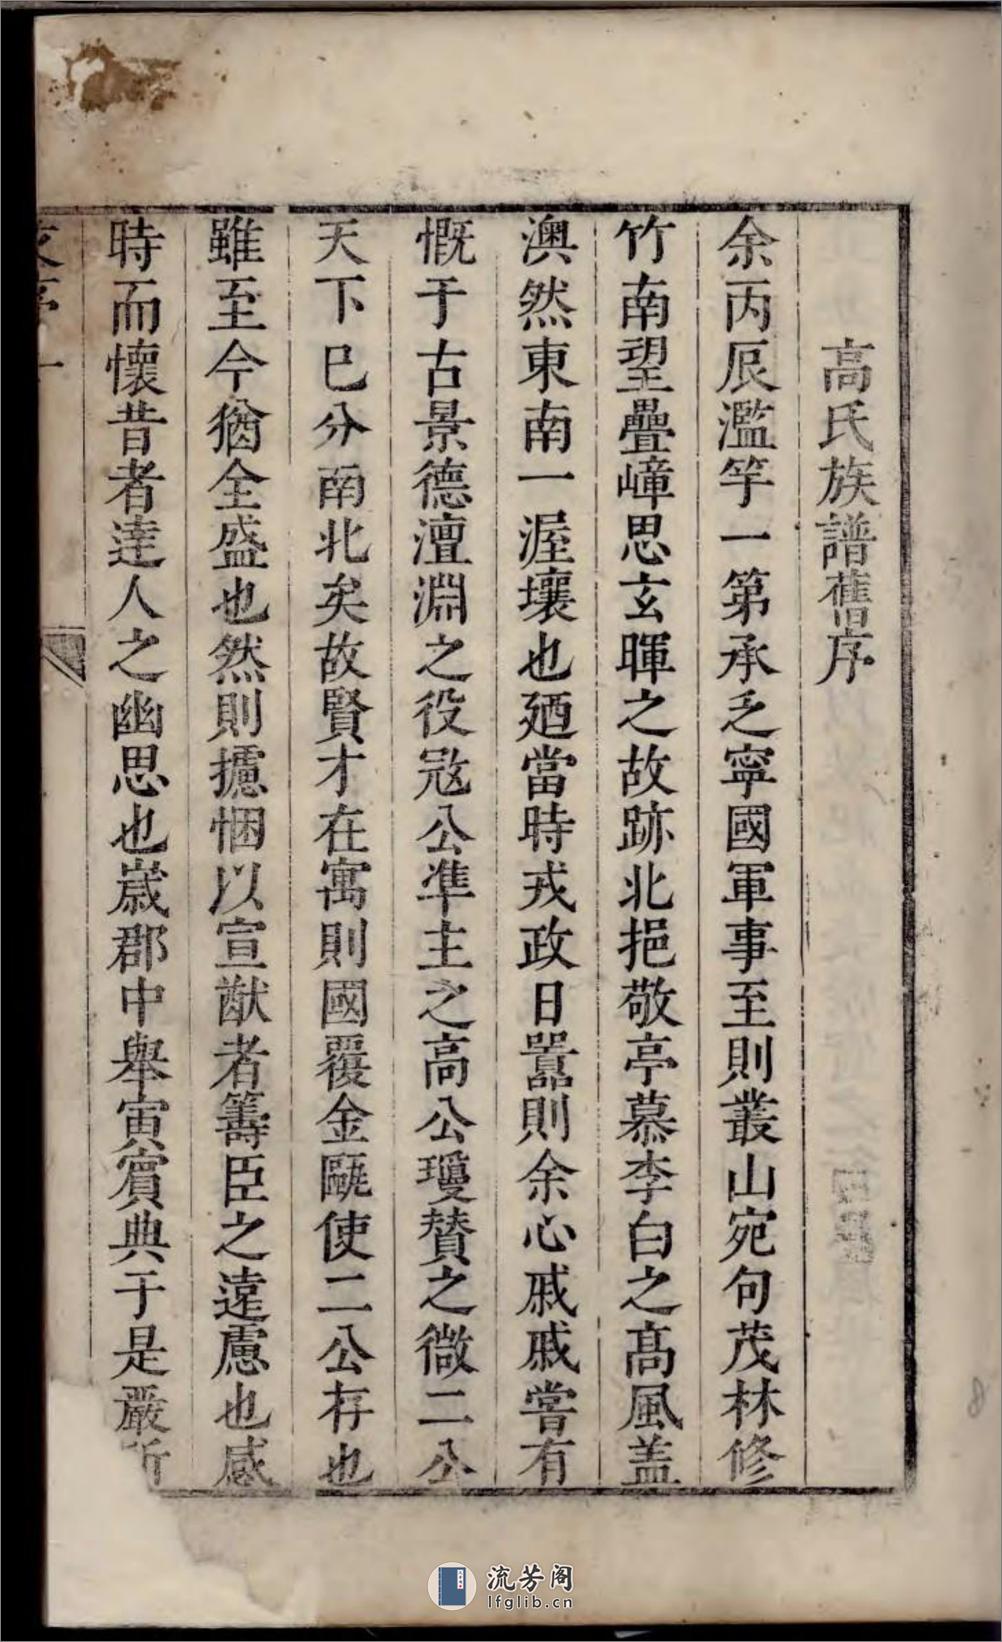 高氏族譜舊序
余丙辰濫竽一第承乏寧國軍事至則叢山宛句茂林修
竹南望疊嶂思玄暉之故跡北挹敬亭慕李白之高風蓋
澳然東南一渥壤也廼當時戎政日嚣則余心戚戚嘗有
慨于古景德澶淵之役冦公準主之高公瓊賛之微二公
天下巳分南北矣故賢才在寓則國覆金甌使二公存也
雖至今猶全盛也然則攄悃以宣猷者籌臣之遠慮也感
時而懷昔者達人之幽思也嵗郡中舉寅賓典于是嚴所
流芳阁
lfglib.cn